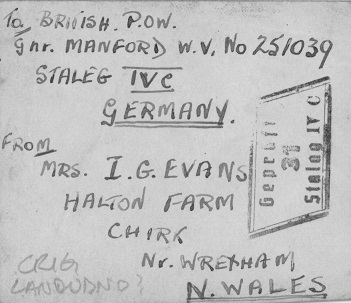 To BRITISH P.O.W.
Gnr. MANFORD W.V. No 251039
STALEG IVC
GERMANY.
FROM
MRS. I.G. EVANS
HALTON FARM
CHIRK
Nr. WREXHAM
N. WALES
Geprüft
31
Stalag IV C
CRIG
LANDUDNO?